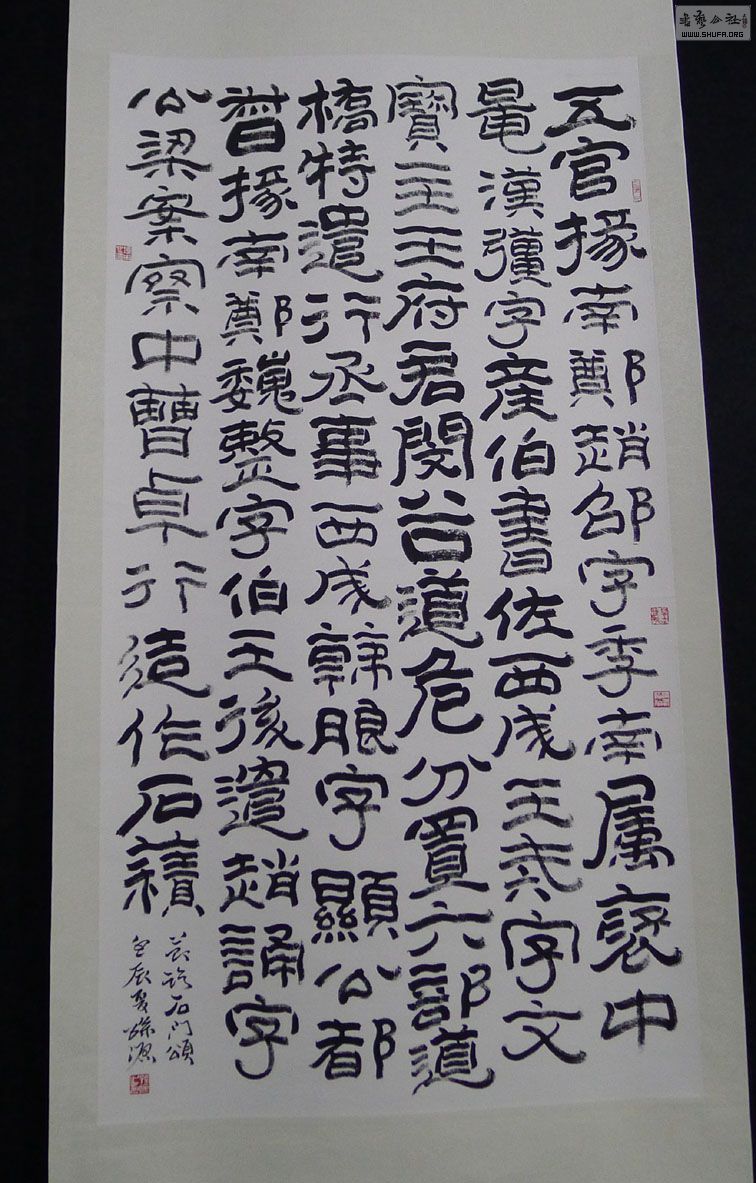 五官掾南鄭趙邵字季南属褒中
鼂漢彊字產伯書佐西成王戒字文
寶主王府君閔谷道危分置六部道
橋特遣行丞事西成韓朖字顯公都
督掾南鄭魏整字伯玉後遣趙誦字
公梁案察中曹卓行造作石積
節臨石门頌
壬辰夏
書藝公社
WWW.SHUFA.ORG